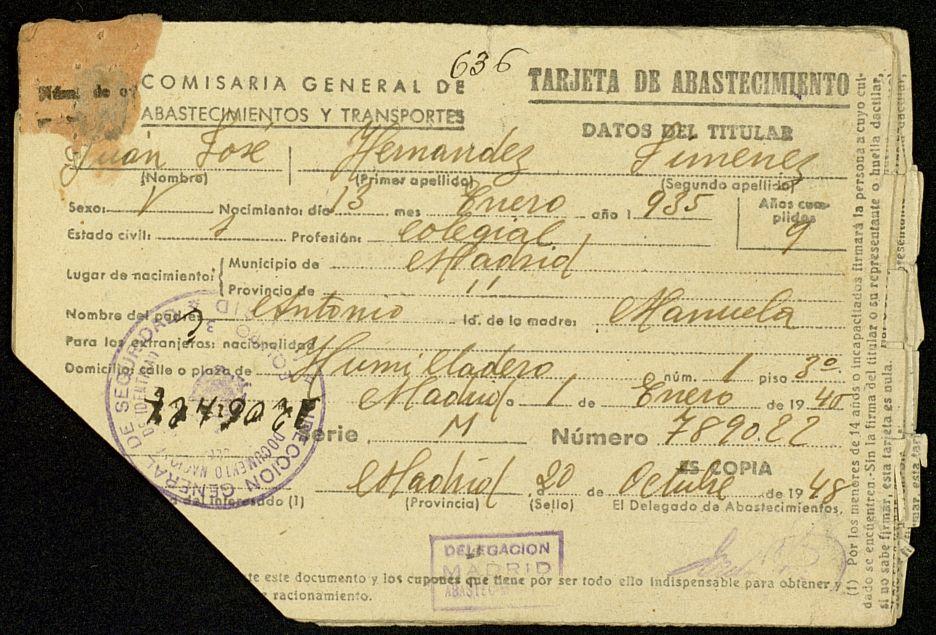 636
COMISARIA GENERAL DE
ABASTECIMIENTOS Y TRANSPORTES
TARJETA DE ABASTECIMIENTO
DATOS DEL TITULAR
Juan José Hernandez Jimenez
(Nombre) (Primer apellido) (Segundo apellido)
Sexo: V Nacimiento: día 13 mes Enero año 1 935
Años cumplidos 9
Estado civil: S Profesión: Colegial
Lugar de nacimiento: Municipio de Madrid
Provincia de "
Nombre del padre Antonio Id. de la madre: Manuela
Para los extranjeros: nacionalidad
Domicilio: calle o plaza de Humilladero núm. 1 piso 3º
Madrid a 1 de Enero de 19 40
Serie M Número 789022
ES COPIA
Madrid, a 20 de Octubre de 19 48
(Provincia) (Sello) El Delegado de Abastecimientos,
del interesado (1)
DIRECCION GENERAL DE SEGURIDAD
DOCUMENTO NACIONAL DE IDENTIDAD
DELEGACION
MADRID
te este documento y los cupones que tiene por ser todo ello indispensable para obtener
racionamiento.
(1) Por los menores de 14 años o incapacitados firmará la persona a cuyo cui-
dado se encuentren.-Sin la firma del titular o su representante o huella dactilar,
si no sabe firmar, esta tarjeta es nula.